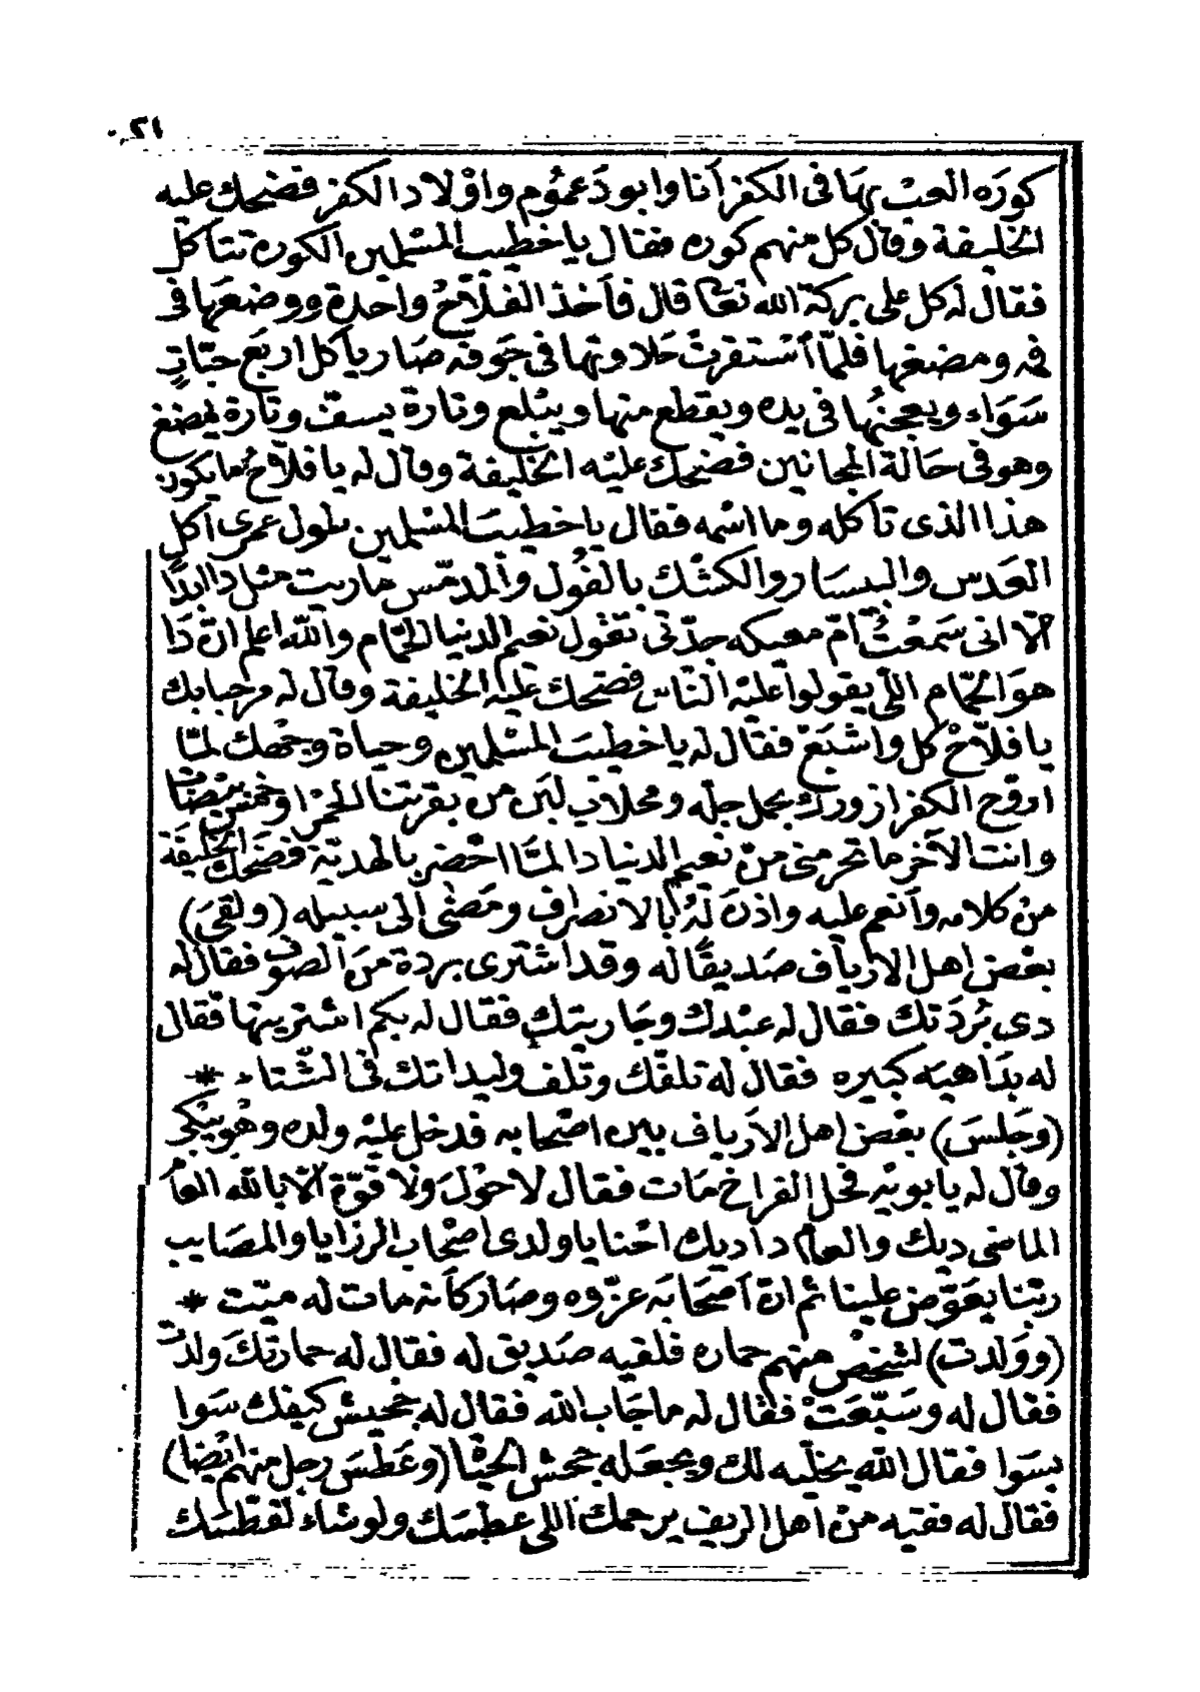 ٢١
كوره العب بها فى الكفر أنا وابو دعموم واولاد الكفر فضحك عليه
الخليفة وقال كل منهم كوره فقال يا خطيب المسلمين الكوره تتأكل
فقال له كل على بركة الله تعا قال فأخذ الفلاح واحدة ووضعها فى
فمه ومضغها فلمّا أستقرت حلاوتها فى جوفه صار يأكل اربع حبّاتٍ
سَوَاء ويعجنُها فى يده ويقطع منها ويبْلع وتارة يسفّ وتارة يمضغ
وهو فى حَالة المجانين فضحك عليْه الخليفة وقال له يا فلاحُ ما يكون
هذا الذى تأكله وما اسْمه فقال يا خطيبَ المسْلمين بطول عمرى آكل
العَدس والبيسَار والكشْك بالفُول والمدمّس ما ريت مثل دا ابدًا
الّا انى سَمعْتُ امّ معيكه جدّتى تقول نعيم الدنيا الحمّام والله اعلم انّ دَا
هوَ الحمّام اللّى يقولوا عليْه النّاس فضحك عليْه الخليفة وقال له مرحبا بك
يا فلاّحْ كل واشبَعْ فقال له يا خطيبَ المسْلمين وحياة وجْهك لمّا
اروّح الكفر ازورك بحمل جلّه ومحلاب لبَن من بقرتنا الحمْرا وخمس بيْضات
وانت الآخر ما تحرمنى منْ نعيم الدنيا دا لمّا احْضر بالهديّة فضحك الخليفَة
منْ كلامه وأنعم عليه واذنَ لَهُ بالانصراف ومَضَى الى سبيله (ولقىَ)
بعْض اهل الارياف صَديقًا له وقد اشترى بردة منَ الصّوف فقال له
دى بُردَتك فقال له عبْدك وجَاريتك فقال له بكم اشتريتها فقال
له بدَاهيَه كبيره فقال له تلفّك وتلف وليداتك فى الشّتاء *
(وجَلسَ) بعْض اهل الارياف بين اصْحابه فدخل عليْه ولده وهُو يبْكى
وقال له يا بويْه فحل الفراخ مَات فقال لا حوْلَ ولا قوّة الّا بالله العاْم
الماضى ديك والعاْم دا ديك احْنا يا ولدى اصْحاب الرزايا والمصَايب
ربّنا يعَوّض علينا ثم انّ أصْحَابَه عزّوه وصَار كأنه مات له ميّت *
(ووَلدت) لشخْص منهم حماره فلقيه صَديق له فقال له حمارتكَ ولدتْ
فقال له وسَبّعَتْ فقال له ما جَاب الله فقال له جحيش كيفك سَوا
بسَوا فقال الله يخلّيه لك ويجعَله جحش الحيَاْ (وعَطسَ رجل منهم ايْضا)
فقال له فقيه منْ اهل الريف يرحمك اللى عطسَك ولو شاء لفَطّسَك